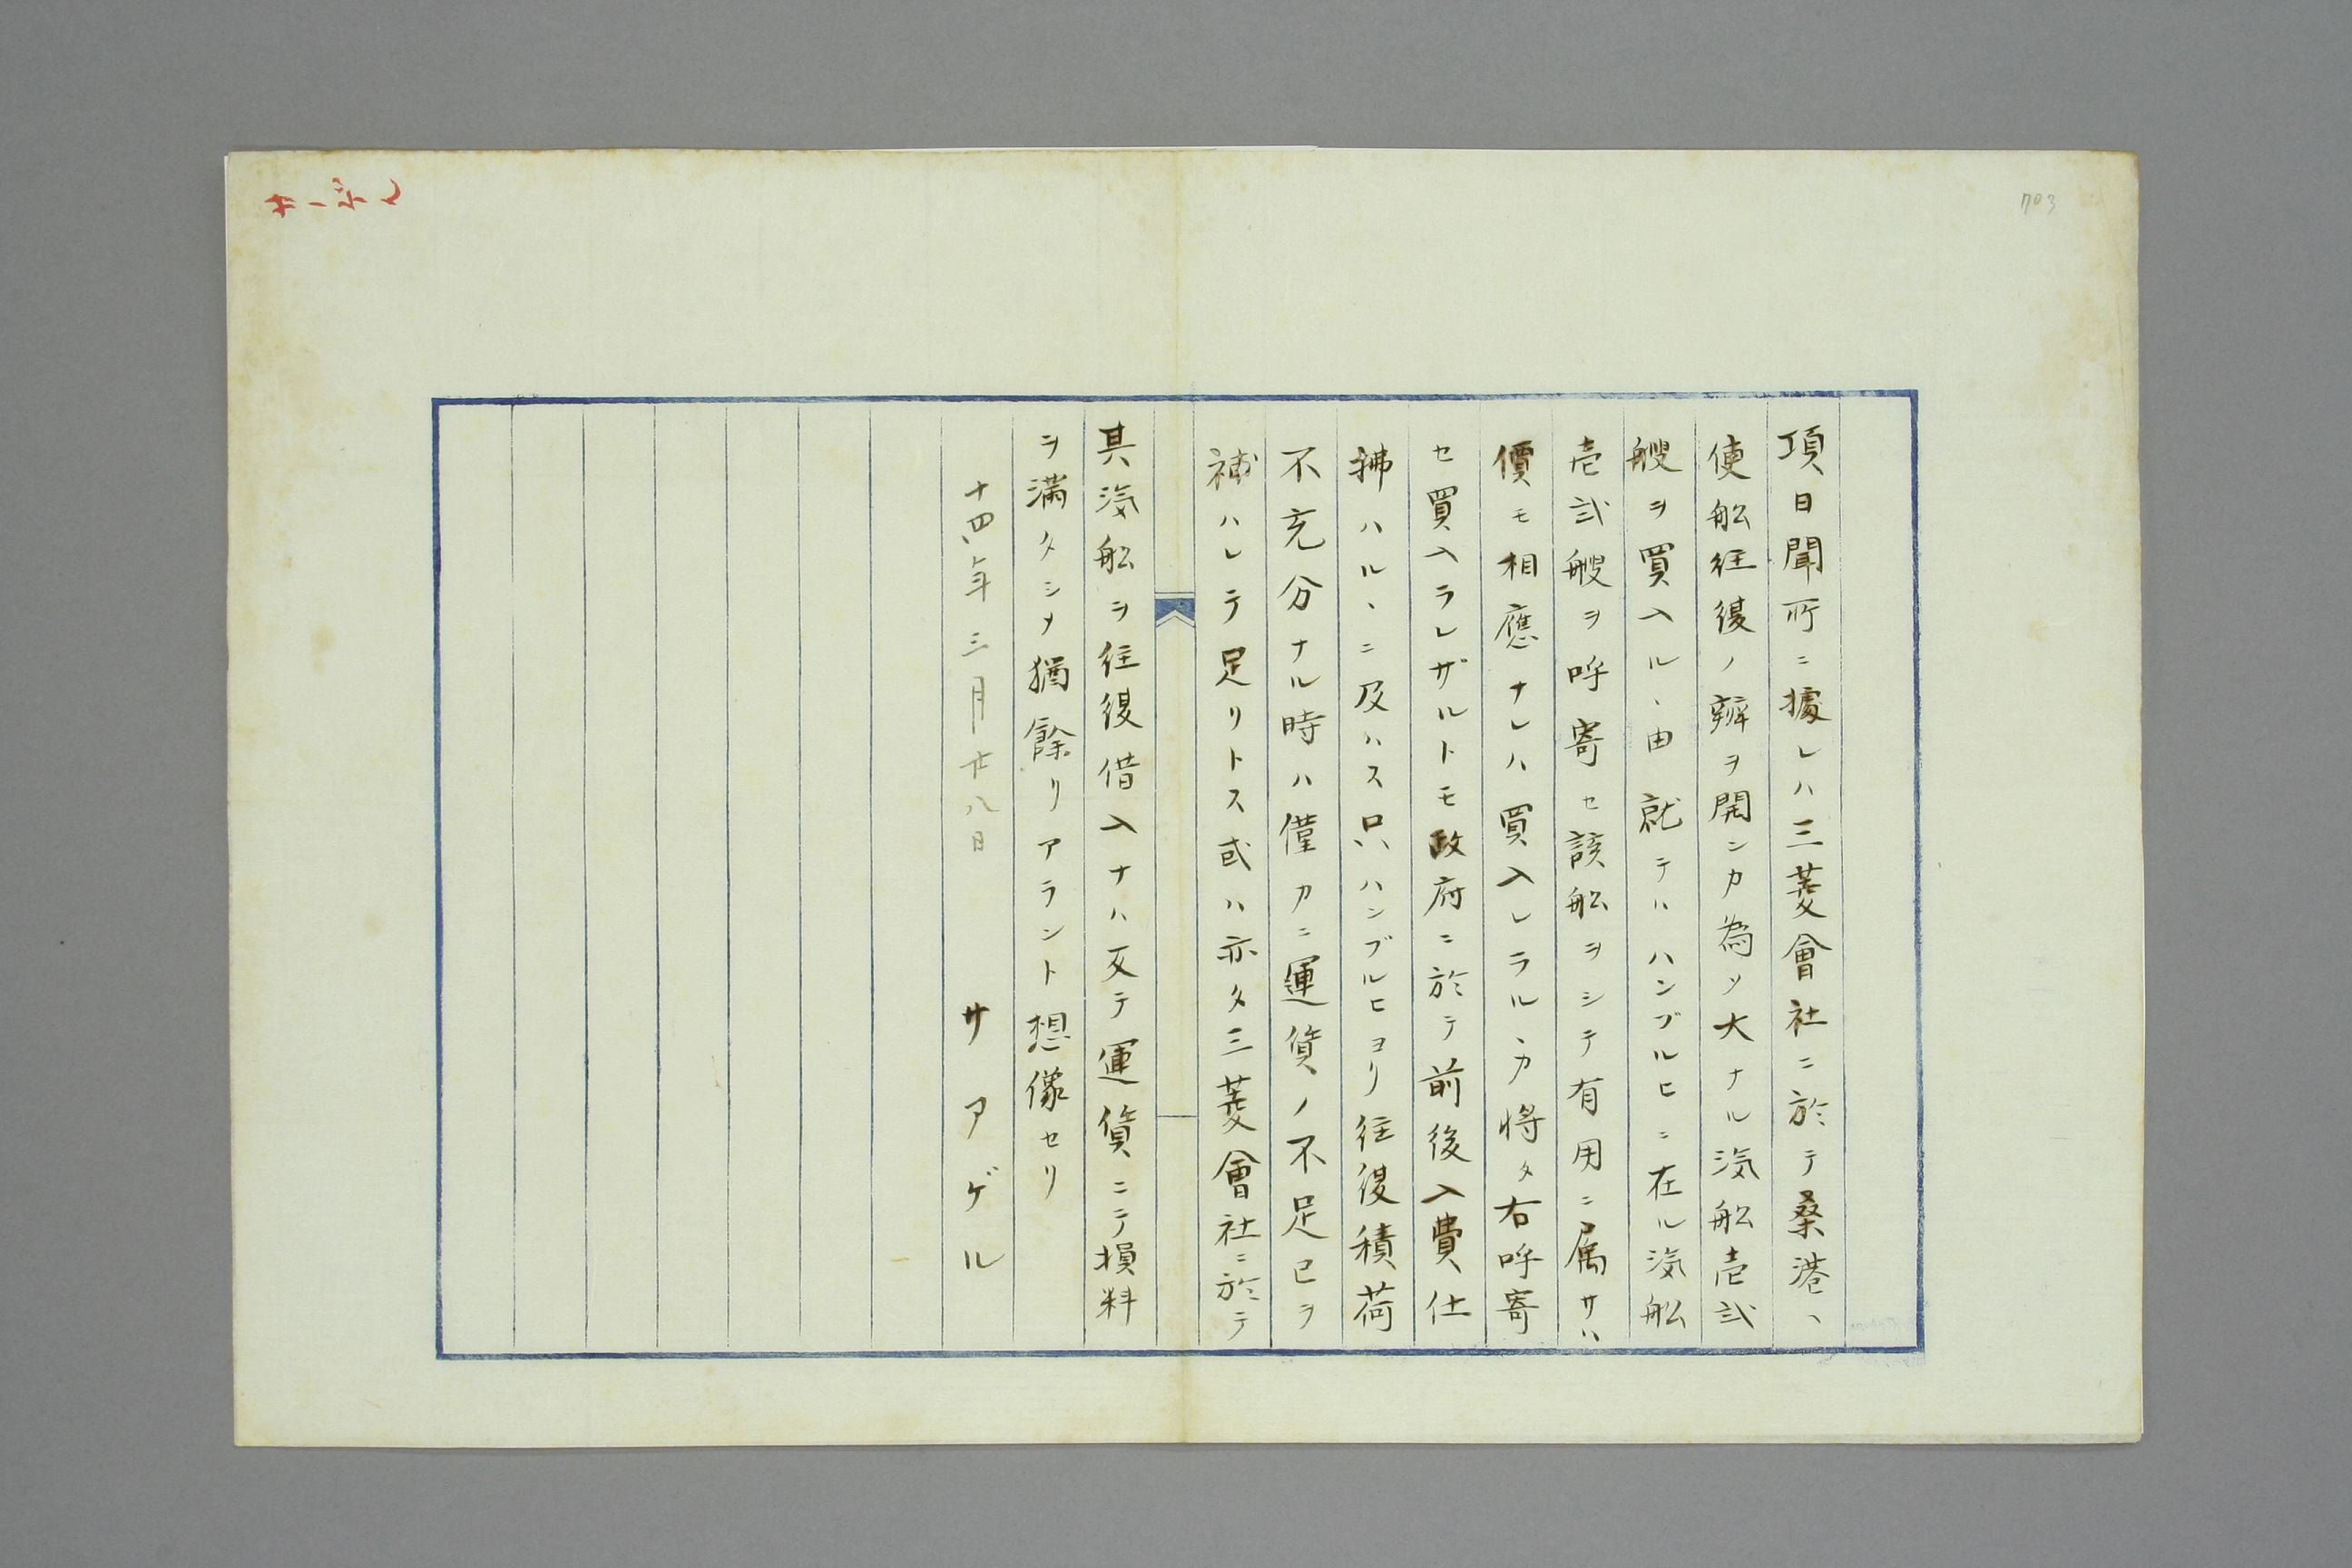 703
頃日聞所ニ據レハ三菱會社ニ於テ桑港ヘ
使舩徃復ノ辨ヲ開ンカ為ソ大ナル滊舩壱弐
艘ヲ買入ル、由就テハハンブルヒニ在ル滊舩
壱弐艘ヲ呼寄セ該舩ヲシテ有用ニ属サハ
價モ相應ナレハ買入レラル、カ将タ右呼寄
セ買入ラレザルトモ政府ニ於テ前後入費仕
拂ハル、ニ及ハス只ハンブルヒヨリ徃復積荷
不充分ナル時ハ僅カニ運賃ノ不足已ヲ
補ハレテ足リトス或ハ亦タ三菱會社ニ於テ
其滊舩ヲ徃復借入ナハ反テ運賃ニテ損料
ヲ満タシメ猶餘リアラント想像セリ
十四年三月廿八日
サアゲル